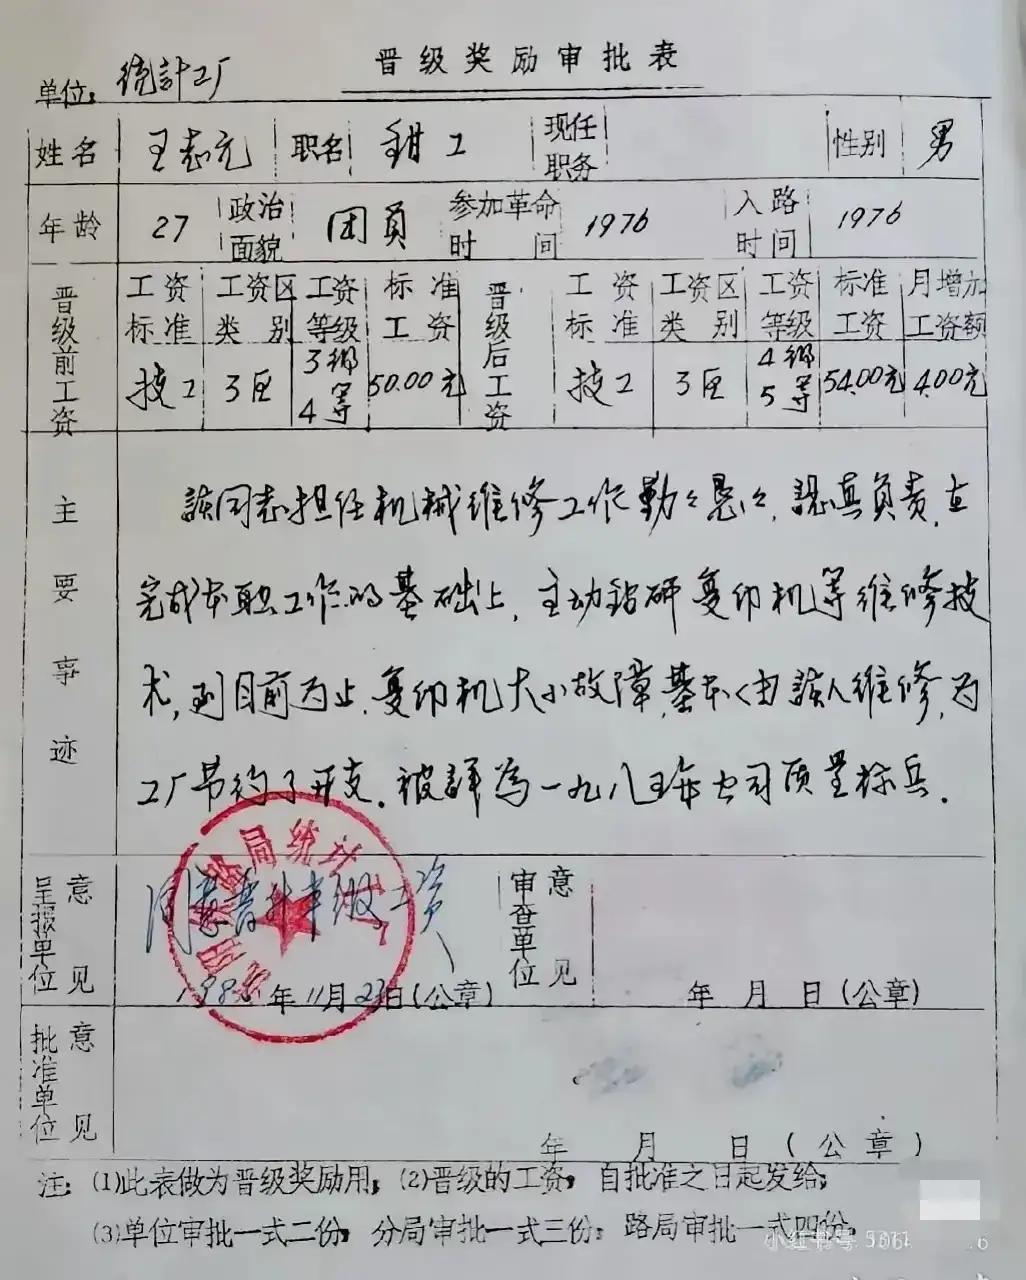 晋级奖励审批表
单位：统計工厂
姓名 王志元 职名 鉗工 现任职务 性别 男
年龄 27 政治面貌 团员 参加革命时间 1976 入路时间 1976
晋级前工资 工资标准 工资区类别 工资等级 标准工资 晋级后工资 工资标准 工资区类别 工资等级 标准工资 月增加工资额
技工 3区 3级4等 50.00元 技工 3区 4级5等 54.00元 4.00元
主要事迹
該同志担任机械维修工作勤々恳々，認真负责，在
完成本职工作的基础上，主动钻研复印机等维修技
术，到目前为止，复印机大小故障，基本由該人维修，为
工厂节约了开支。被評為一九八五年公司质量标兵．
呈报单位意见
同意晋升壹级工资
198 年11月23日(公章)
局统计
审查单位意见
年 月 日(公章)
批准单位意见
年 月 日(公章)
注：(1)此表做为晋级奖励用；(2)晋级的工资，自批准之日起发给；
(3)单位审批一式二份；分局审批一式三份；路局审批一式四份。
小红书号